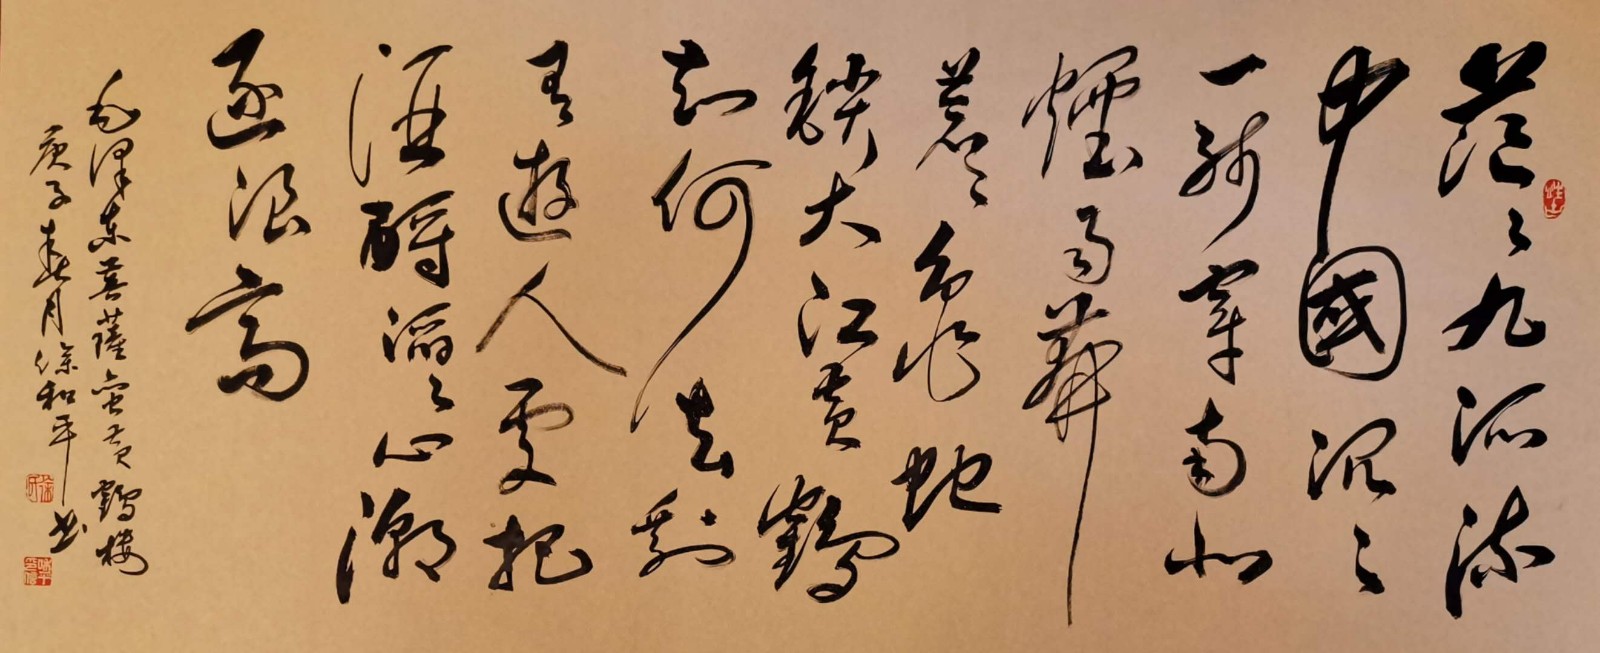 茫〻九派流
中國沉〻
一线穿南北
煙雨莽
蒼〻龜蛇
鎖大江黄鶴
知何去剩
有遊人處把
酒酹滔〻心潮
逐浪高
毛澤东菩薩蛮黄鶴楼
庚子春月徐和平书